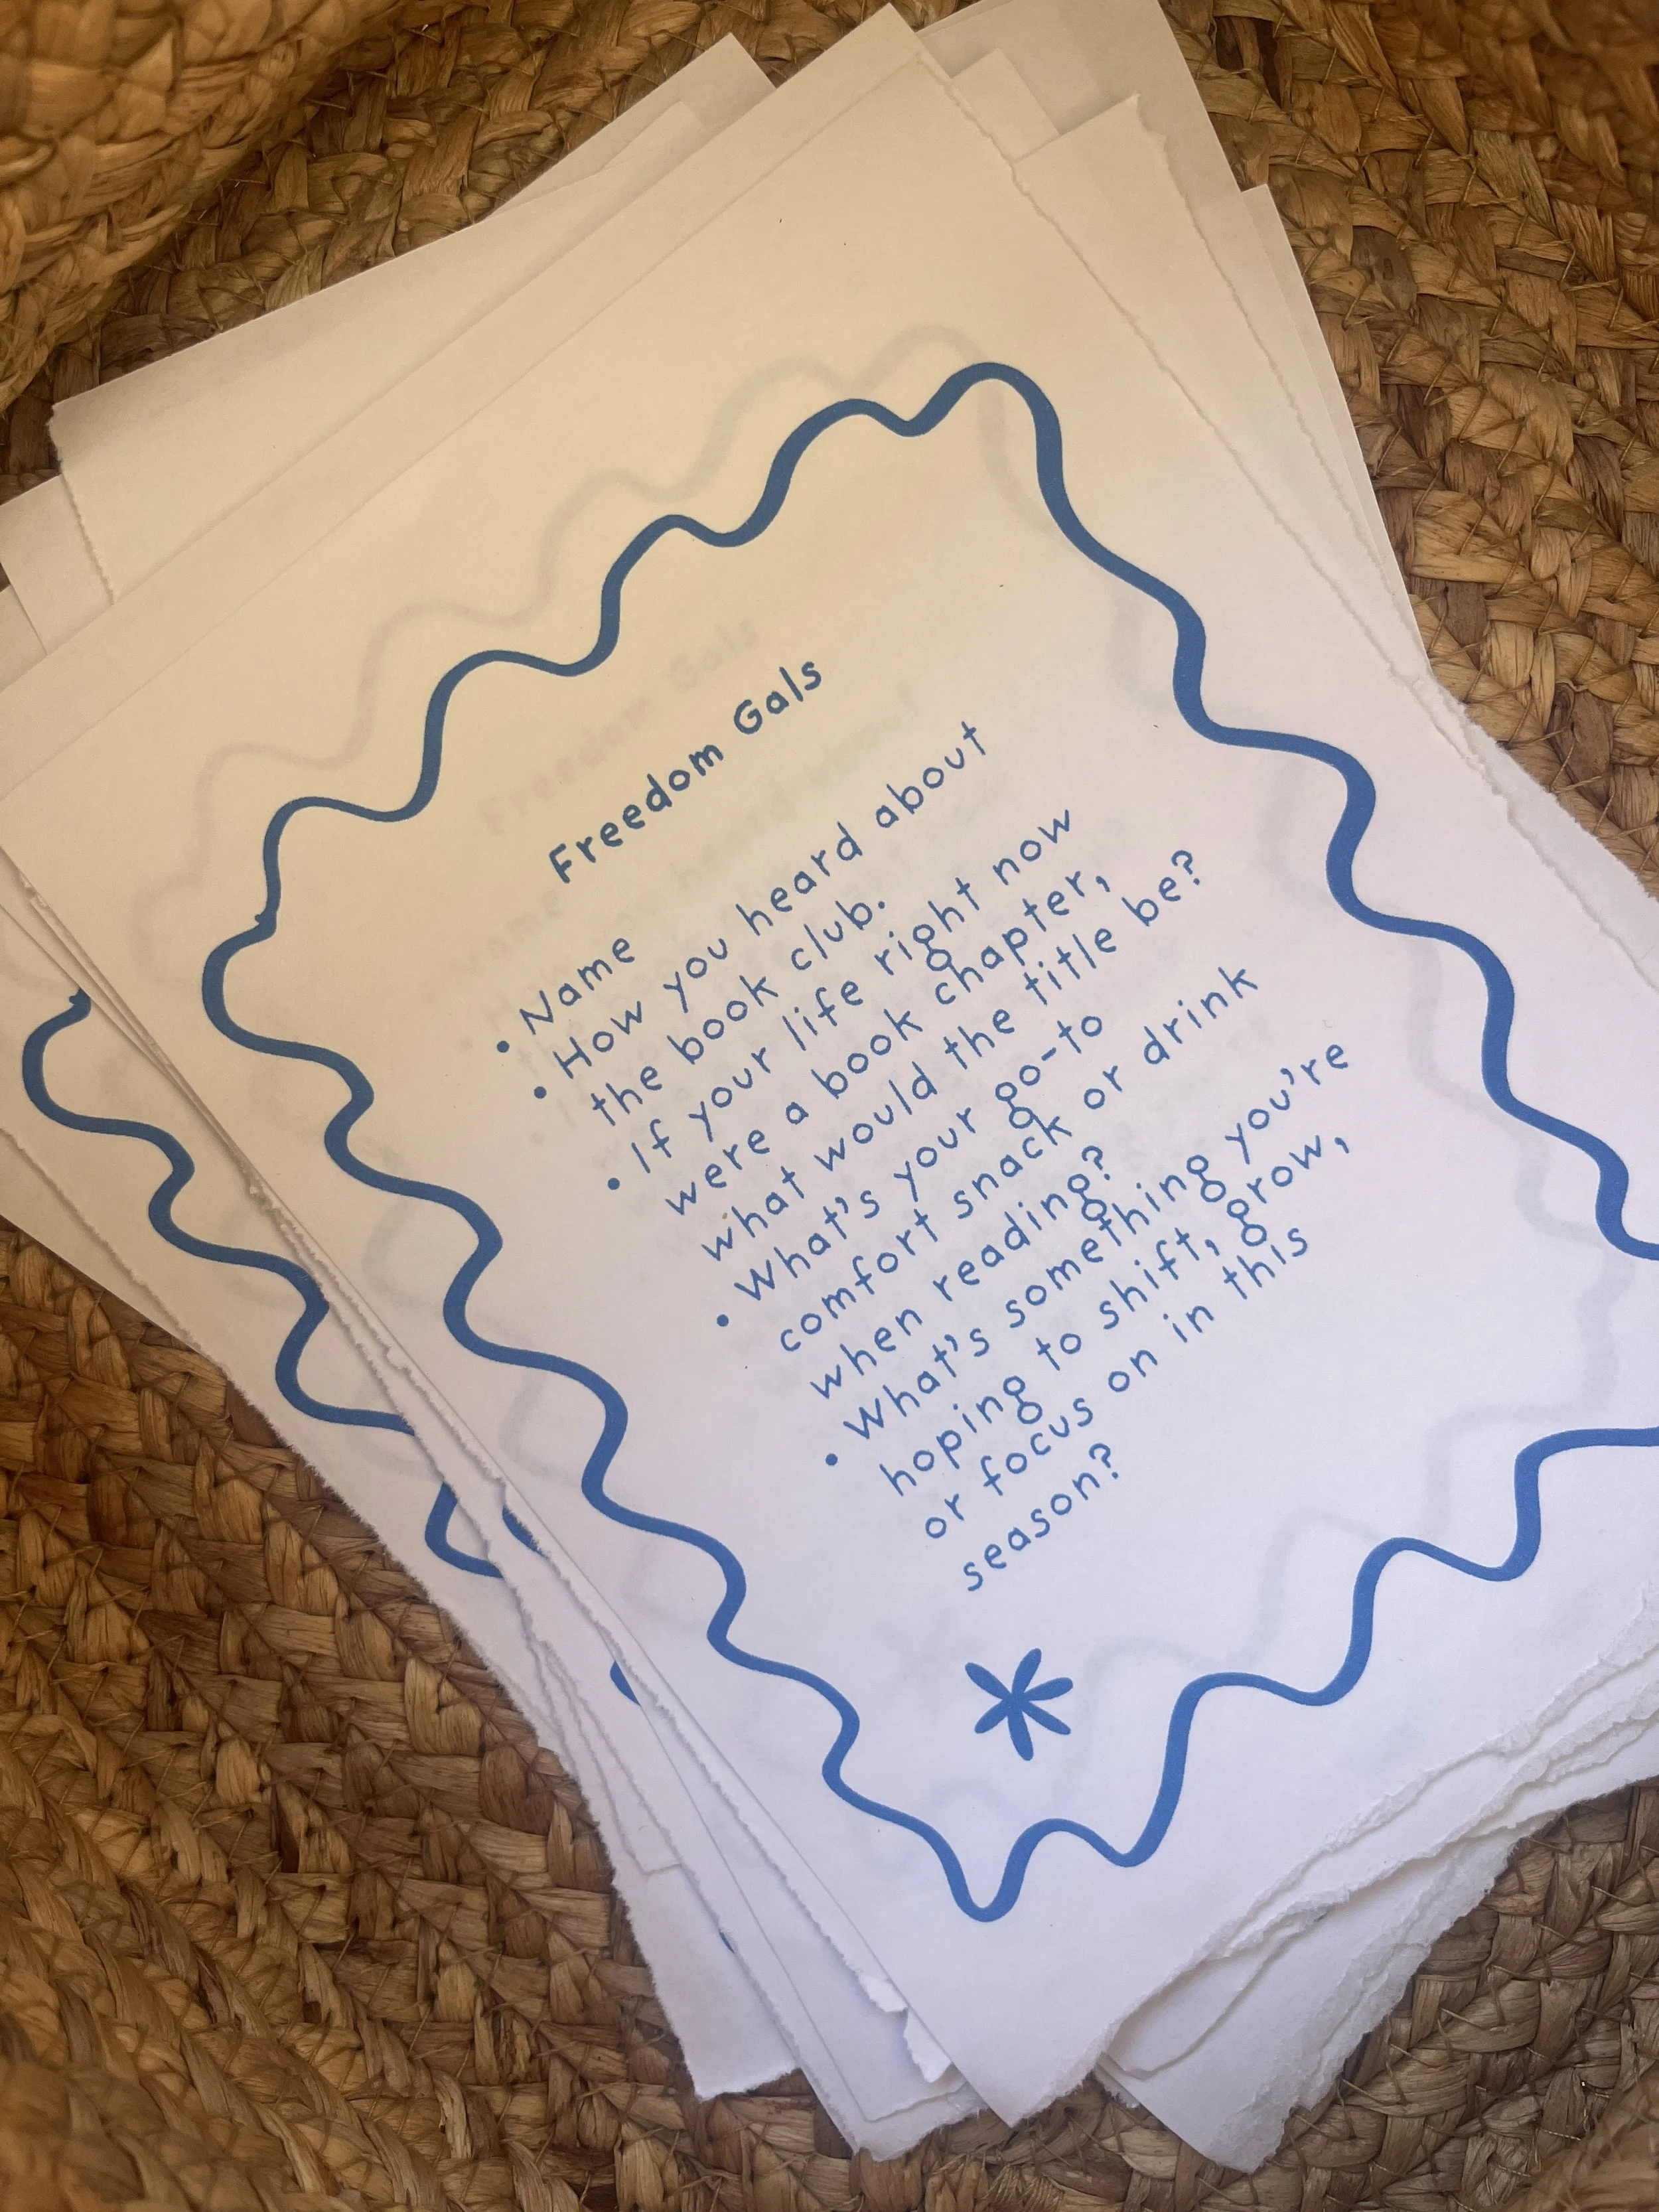 Freedom Gals
• Name
• How you heard about
the book club.
• If your life right now
were a book chapter,
what would the title be?
• What's your go-to
comfort snack or drink
when reading?
• What's something you're
hoping to shift, grow,
or focus on in this
season?